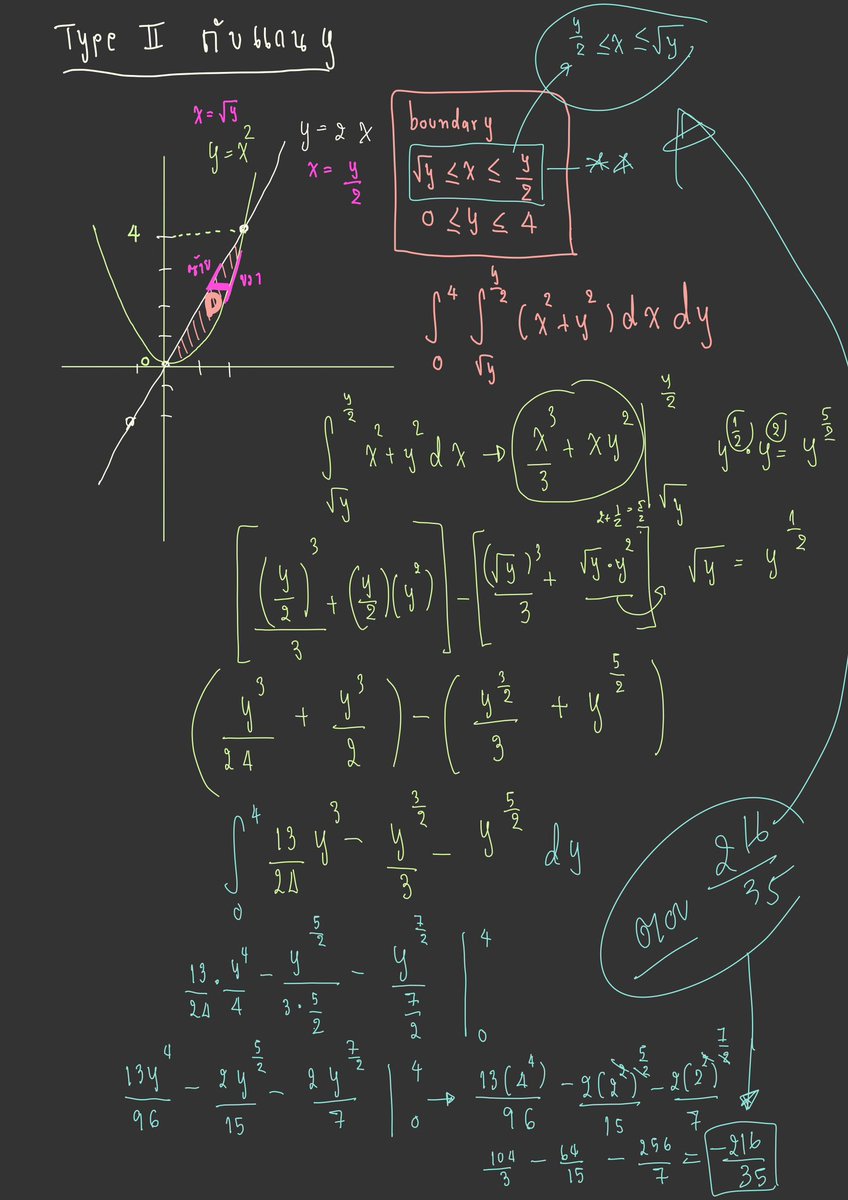 Type II กับแกน y
y/2 ≤ x ≤ √y
x = √y
y = x²
y = 2x
x = y/2
boundary
√y ≤ x ≤ y/2 — **
0 ≤ y ≤ 4
4
ซ้าย
ขวา
D
0
∫₀⁴ ∫_{√y}^{y/2} (x² + y²) dx dy
∫_{√y}^{y/2} x² + y² dx → x³/3 + xy² |_{√y}^{y/2}
y^{1/2} · y^{2} = y^{5/2}
2 + 1/2 = 5/2
[(y/2)³/3 + (y/2)(y²)] − [(√y)³/3 + √y · y²]
√y = y^{1/2}
(y³/24 + y³/2) − (y^{3/2}/3 + y^{5/2})
∫₀⁴ 13/24 y³ − y^{3/2}/3 − y^{5/2} dy
216/35
13/24 · y⁴/4 − y^{5/2}/(3 · 5/2) − y^{7/2}/(7/2) |₀⁴
13y⁴/96 − 2y^{5/2}/15 − 2y^{7/2}/7 |₀⁴ → 13(4⁴)/96 − 2(2²)^{5/2}/15 − 2(2²)^{7/2}/7
104/3 − 64/15 − 256/7 = −216/35